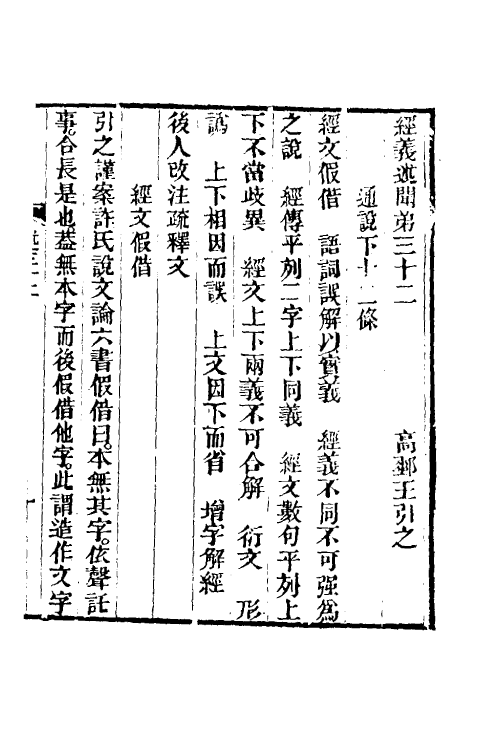 經義述聞弟三十二 高郵王引之
通說下十二條
經文假借 語詞誤解以實義 經義不同不可强爲
之說 經傳平列二字上下同義 經文數句平列上
下不當歧異 經文上下兩義不可合解 衍文 形
譌 上下相因而誤 上文因下而省 增字解經
後人改注疏釋文
經文假借
引之謹案許氏說文論六書假借曰。本無其字。依聲託
事。合長是也。葢無本字而後假借他字。此謂造作文字